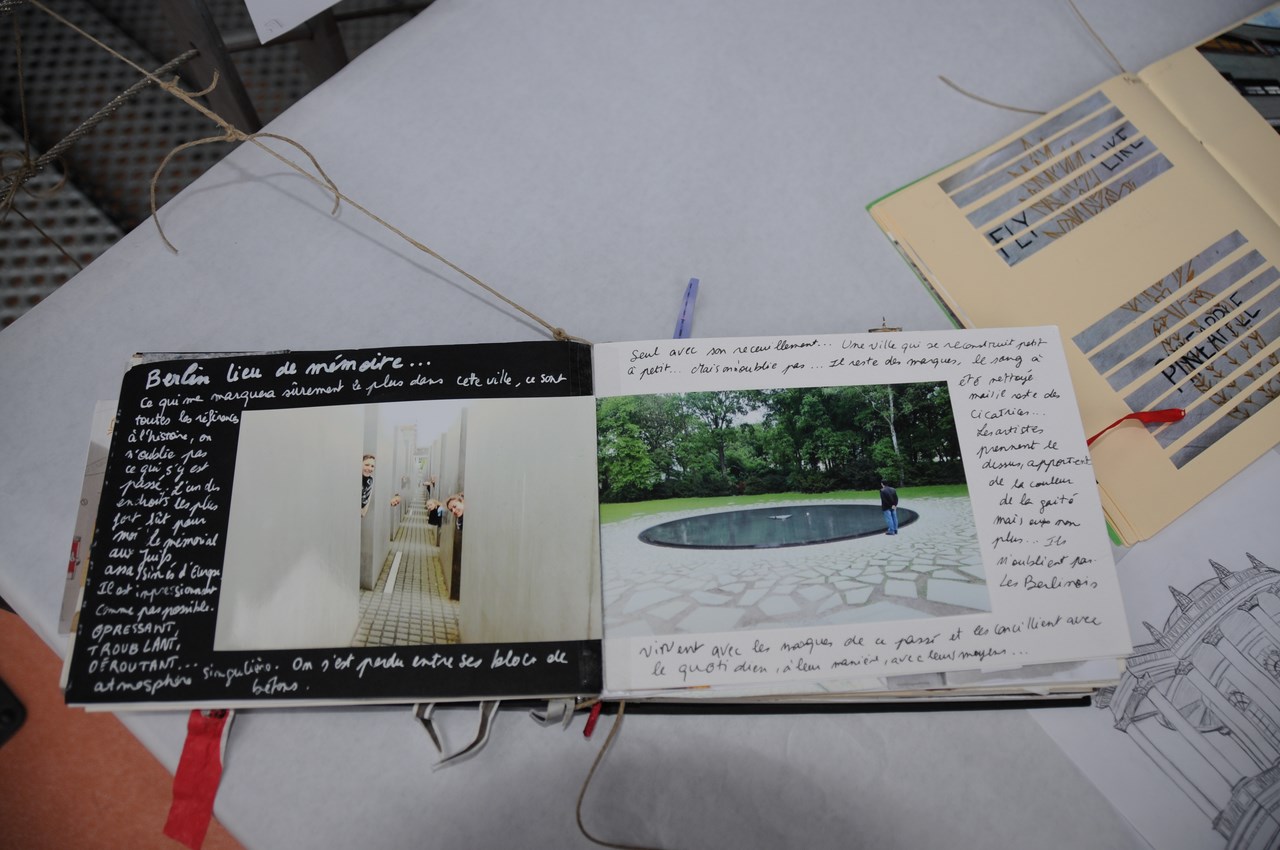 Berlin lieu de mémoire...
Ce qui me marquera sûrement le plus dans cette ville, ce sont
toutes les références
à l'histoire, on
n'oublie pas
ce qui s'y est
passé. L'un des
endroits les plus
fort fût pour
moi le mémorial
aux Juifs
assassinés d'Europe
Il est impressionnant
comme pas possible.
OPRESSANT,
TROUBLANT,
DÉROUTANT...
atmosphère singulière. On s'est perdu entre ses blocs de
bétons.
Seul avec son receuillement... Une ville qui se reconstruit petit
à petit... Mais n'oublie pas... Il reste des marques, le sang à
été nettoyé
mais, il reste des
cicatrices...
Les artistes
prennent le
dessus, apportent
de la couleur
de la gaité
mais eux non
plus... Ils
n'oublient pas.
Les Berlinois
vivent avec les marques de ce passé et les concillient avec
le quotidien, à leur manière, avec leurs moyens...
LIKE
FLY
PINEAPPLE